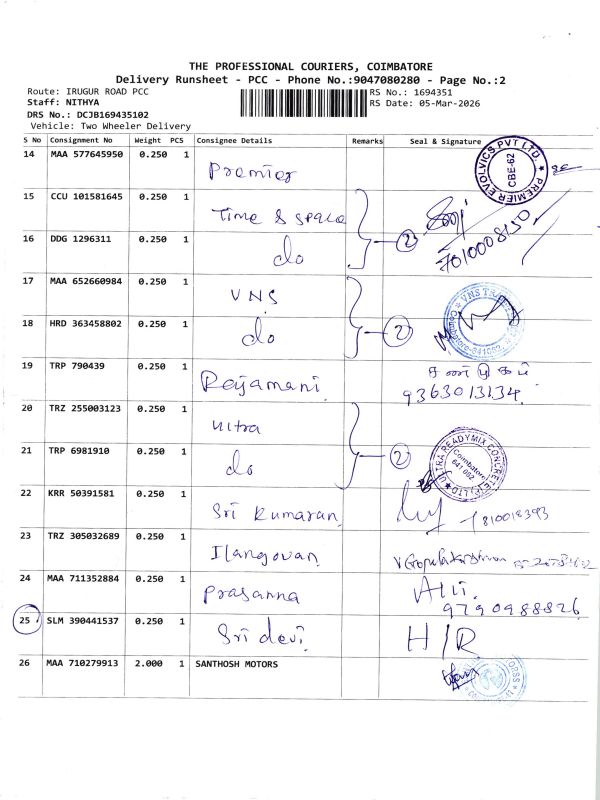 THE PROFESSIONAL COURIERS, COIMBATORE
Delivery Runsheet - PCC - Phone No.:9047080280 - Page No.:2
Route: IRUGUR ROAD PCC
RS No.: 1694351
Staff: NITHYA
RS Date: 05-Mar-2026
DRS No.: DCJB169435102
Vehicle: Two Wheeler Delivery
S No Consignment No Weight PCS Consignee Details Remarks Seal & Signature
14 MAA 577645950 0.250 1 Premier PREMIER EVOLVICS PVT LTD. CBE-62
15 CCU 101581645 0.250 1 Time & space
16 DDG 1296311 0.250 1 do 2
17 MAA 652660984 0.250 1 VNS
18 HRD 363458802 0.250 1 do 2
19 TRP 790439 0.250 1 Rajamani 9363013134
20 TRZ 255003123 0.250 1 ultra
21 TRP 6981910 0.250 1 do 2 ULTRA READYMIX CONCRETE (P) LTD Coimbatore 641 062
22 KRR 50391581 0.250 1 Sri Kumaran
23 TRZ 305032689 0.250 1 Ilangovan
24 MAA 711352884 0.250 1 Prasanna 9790988826
25 SLM 390441537 0.250 1 Sri devi H/R
26 MAA 710279913 2.000 1 SANTHOSH MOTORS